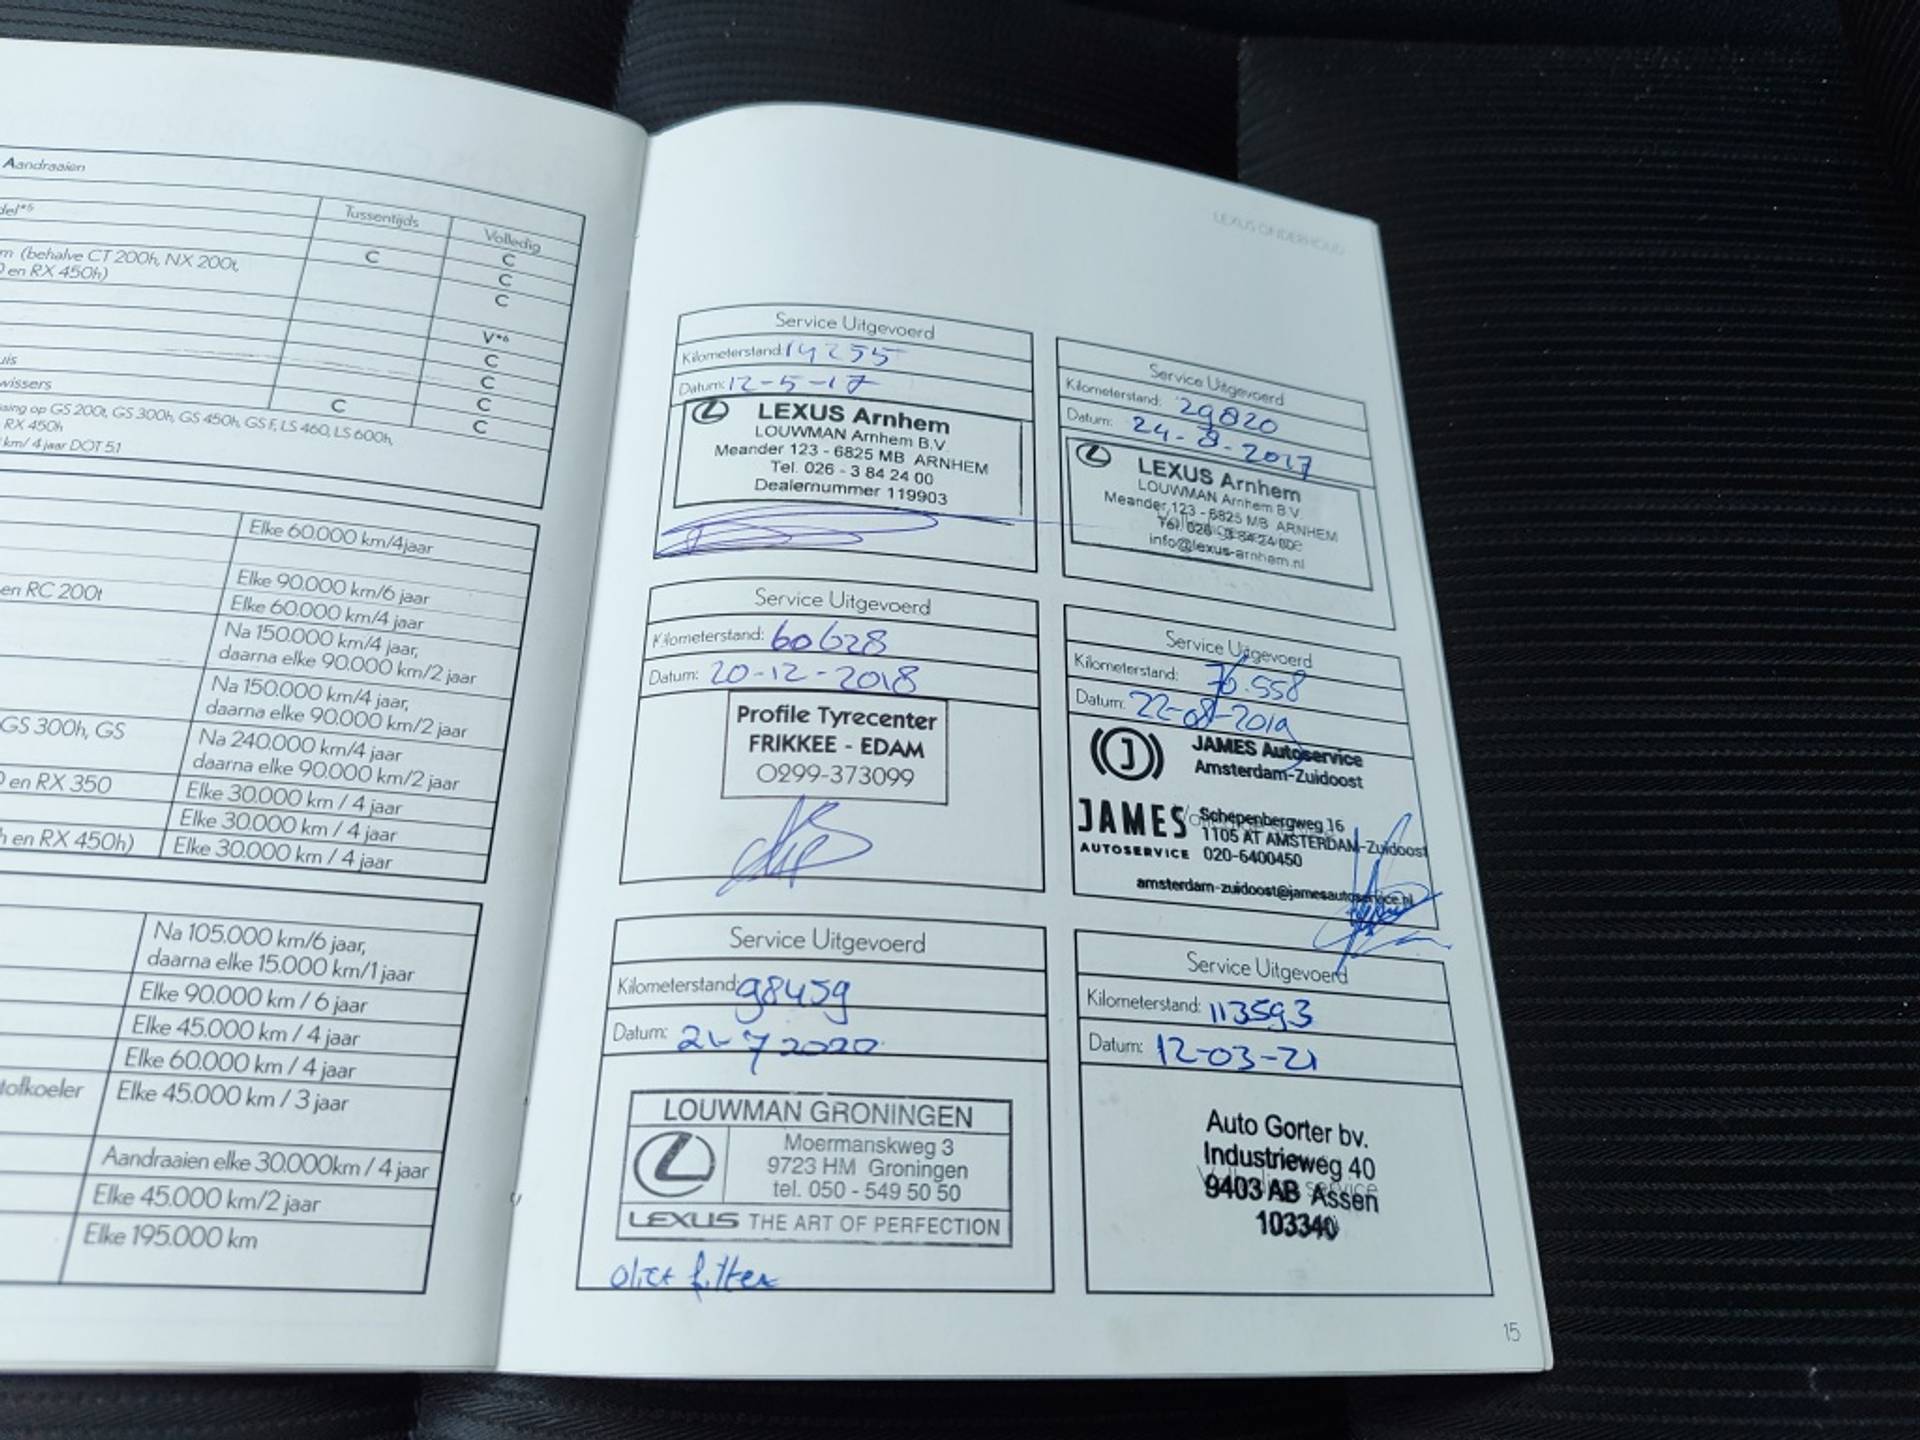 Aandraaien
Tussentijds
Volledig
(behalve CT 200h, NX 200t,
C
C
en RX 450h)
C
C
V*6
C
C
wissers
C
C
op GS 200t, GS 300h, GS 450h, GS F, LS 460, LS 600h,
C
RX 450h
km/ 4 jaar DOT 5.1
Elke 60.000 km/4jaar
Elke 90.000 km/6 jaar
en RC 200t
Elke 60.000 km/4 jaar
Na 150.000 km/4 jaar,
daarna elke 90.000 km/2 jaar
Na 150.000 km/4 jaar,
daarna elke 90.000 km/2 jaar
GS 300h, GS
Na 240.000 km/4 jaar
daarna elke 90.000 km/2 jaar
en RX 350
Elke 30.000 km / 4 jaar
Elke 30.000 km / 4 jaar
en RX 450h)
Elke 30.000 km / 4 jaar
Na 105.000 km/6 jaar,
daarna elke 15.000 km/1 jaar
Elke 90.000 km / 6 jaar
Elke 45.000 km / 4 jaar
Elke 60.000 km / 4 jaar
Elke 45.000 km / 3 jaar
Aandraaien elke 30.000km / 4 jaar
Elke 45.000 km/2 jaar
Elke 195.000 km
LEXUS ONDERHOUD
Service Uitgevoerd
Kilometerstand: 14255
Datum: 12-5-17
LEXUS Arnhem
LOUWMAN Arnhem B.V.
Meander 123 - 6825 MB ARNHEM
Tel. 026 - 3 84 24 00
Dealernummer 119903
Service Uitgevoerd
Kilometerstand: 29820
Datum: 24-8-2017
LEXUS Arnhem
LOUWMAN Arnhem B.V.
Meander 123 - 6825 MB ARNHEM
Tel. 026 - 3 84 24 00
info@lexus-arnhem.nl
Service Uitgevoerd
Kilometerstand: 60628
Datum: 20-12-2018
Profile Tyrecenter
FRIKKEE - EDAM
0299-373099
Service Uitgevoerd
Kilometerstand: 76.558
Datum: 22-08-2019
JAMES Autoservice
Amsterdam-Zuidoost
JAMES
AUTOSERVICE
Schepenbergweg 16
1105 AT AMSTERDAM-Zuidoost
020-6400450
amsterdam-zuidoost@jamesautoservice.nl
Service Uitgevoerd
Kilometerstand: 98459
Datum: 21 7 2020
LOUWMAN GRONINGEN
Moermanskweg 3
9723 HM Groningen
tel. 050 - 549 50 50
LEXUS THE ART OF PERFECTION
olie+ filter
Service Uitgevoerd
Kilometerstand: 113593
Datum: 12-03-21
Auto Gorter bv.
Industrieweg 40
Volledige service
9403 AB Assen
103340
15